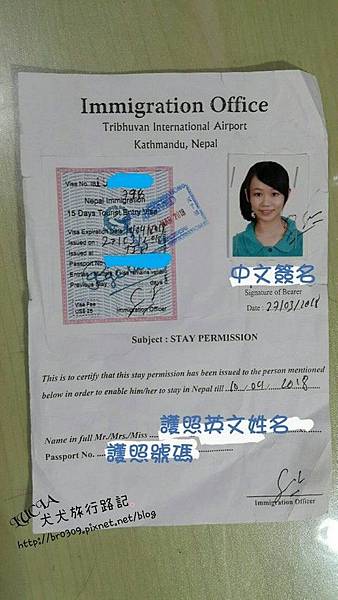 Immigration Office
Tribhuvan International Airport
Kathmandu, Nepal
Visa No.
Nepal Immigration
15 Days Tourist Entry Visa
Visa Expiration Date
Issued on :
Issued at :
Passport No
Previous Stay
days
Visa Fee
US$ 25
Immigration Officer
中文簽名
Signature of Bearer
Date : 27/03/2018
Subject : STAY PERMISSION
This is to certify that this stay permission has been issued to the person mentioned
below in order to enable him/her to stay in Nepal till 10/04/2018
Name in full Mr./Mrs./Miss 護照英文姓名
Passport No. 護照號碼
Immigration Officer
LUCIA
犬犬旅行路記
http://bro309.pixnet.net/blog